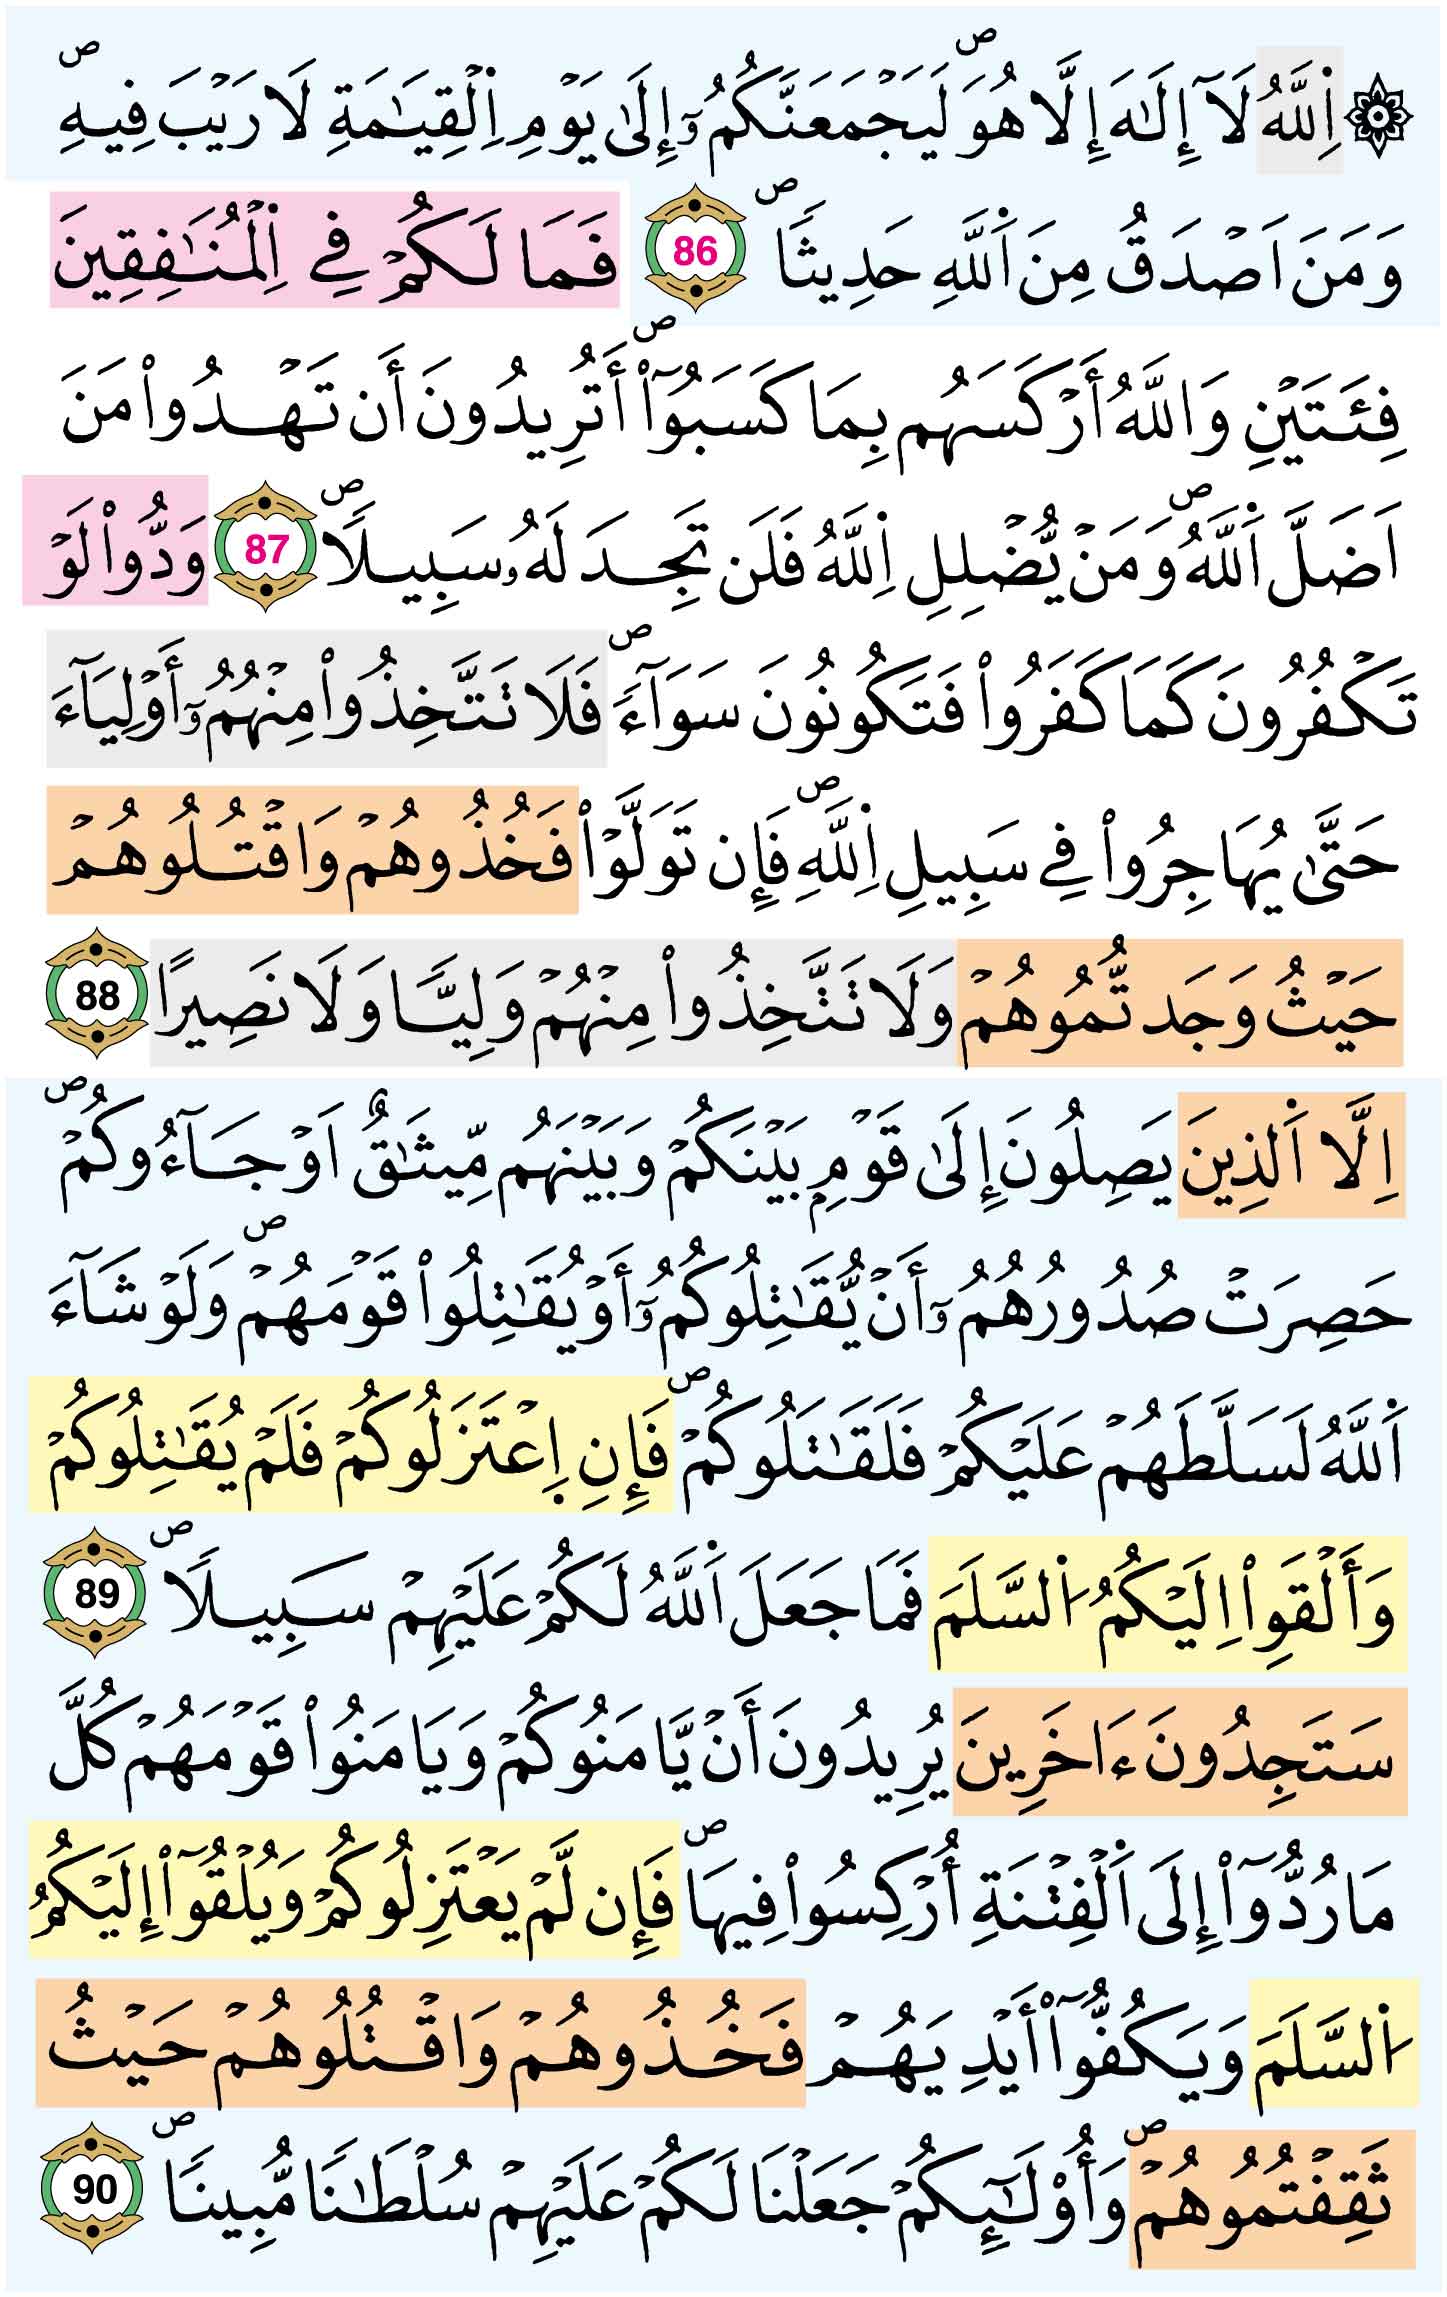 ۞ اَ۬للَّهُ لَآ إِلَٰهَ إِلَّا هُوَۖ لَيَجْمَعَنَّكُمُۥٓ إِلَىٰ يَوْمِ اِ۬لْقِيَٰمَةِ لَا رَيْبَ فِيهِۖ
وَمَنَ اَصْدَقُ مِنَ اَ۬للَّهِ حَدِيثاٗۖ 86 فَمَا لَكُمْ فِے اِ۬لْمُنَٰفِقِينَ
فِئَتَيْنِ وَاللَّهُ أَرْكَسَهُم بِمَا كَسَبُوٓاْۖ أَتُرِيدُونَ أَن تَهْدُواْ مَنَ
اَضَلَّ اَ۬للَّهُۖ وَمَنْ يُّضْلِلِ اِ۬للَّهُ فَلَن تَجِدَ لَهُۥ سَبِيلاٗۖ 87 وَدُّواْ لَوْ
تَكْفُرُونَ كَمَا كَفَرُواْ فَتَكُونُونَ سَوَآءٗۖ فَلَا تَتَّخِذُواْ مِنْهُمُۥٓ أَوْلِيَآءَ
حَتَّىٰ يُهَاجِرُواْ فِے سَبِيلِ اِ۬للَّهِۖ فَإِن تَوَلَّوْاْ فَخُذُوهُمْ وَاقْتُلُوهُمْ
حَيْثُ وَجَدتُّمُوهُمْ وَلَا تَتَّخِذُواْ مِنْهُمْ وَلِيّاٗ وَلَا نَصِيراً 88
اِلَّا اَ۬لذِينَ يَصِلُونَ إِلَىٰ قَوْمِۢ بَيْنَكُمْ وَبَيْنَهُم مِّيثَٰقٌ اَوْ جَآءُوكُمْۖ
حَصِرَتْ صُدُورُهُمُۥٓ أَنْ يُّقَٰتِلُوكُمُۥٓ أَوْ يُقَٰتِلُواْ قَوْمَهُمْۖ وَلَوْ شَآءَ
اَ۬للَّهُ لَسَلَّطَهُمْ عَلَيْكُمْ فَلَقَٰتَلُوكُمْۖ فَإِنِ اِ۪عْتَزَلُوكُمْ فَلَمْ يُقَٰتِلُوكُمْ
وَأَلْقَوِاْ اِلَيْكُمُ اُ۬لسَّلَمَ فَمَا جَعَلَ اَ۬للَّهُ لَكُمْ عَلَيْهِمْ سَبِيلاٗۖ 89
سَتَجِدُونَ ءَاخَرِينَ يُرِيدُونَ أَنْ يَّامَنُوكُمْ وَيَامَنُواْ قَوْمَهُمْ كُلَّ
مَا رُدُّوٓاْ إِلَى اَ۬لْفِتْنَةِ أُرْكِسُواْ فِيهَاۖ فَإِن لَّمْ يَعْتَزِلُوكُمْ وَيُلْقُوٓاْ إِلَيْكُمُ
اُ۬لسَّلَمَ وَيَكُفُّوٓاْ أَيْدِيَهُمْ فَخُذُوهُمْ وَاقْتُلُوهُمْ حَيْثُ
ثَقِفْتُمُوهُمْۖ وَأُوْلَٰٓئِكُمْ جَعَلْنَا لَكُمْ عَلَيْهِمْ سُلْطَٰناٗ مُّبِيناٗۖ 90